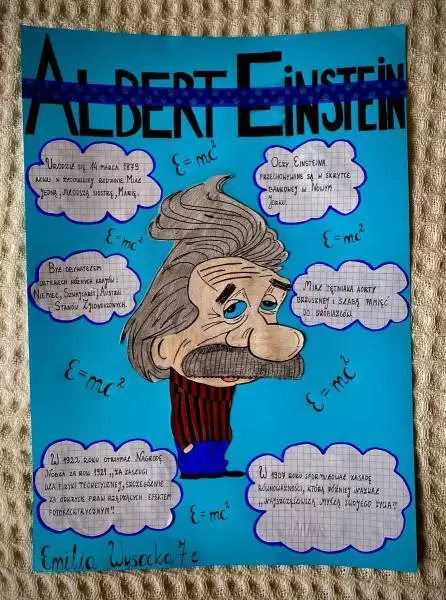 ALBERT EINSTEIN
E=mc²
URODZIŁ SIĘ 14 MARCA 1879
ROKU W ŻYDOWSKIEJ RODZINIE MIAŁ
JEDNĄ, MŁODSZĄ SIOSTRĘ, MARIĘ.
OCZY EINSTEINA
PRZECHOWYWANE SĄ W SKRYTCE
BANKOWEJ W NOWYM
JORKU.
E=mc²
E=mc²
BYŁ OBYWATELEM
CZTERECH RÓŻNYCH KRAJÓW:
NIEMIEC, SZWAJCARII, AUSTRII
STANÓW ZJEDNOCZONYCH.
MIAŁ TĘTNIAKA AORTY
BRZUSZNEJ I SŁABĄ PAMIĘĆ
DO DROBIAZGÓW.
E=mc²
E=mc²
W 1922 ROKU OTRZYMAŁ NAGRODĘ
NOBLA ZA ROK 1921 ,,ZA ZASŁUGI
DLA FIZYKI TEORETYCZNEJ, SZCZEGÓLNIE
ZA ODKRYCIE PRAW RZĄDZĄCYCH EFEKTEM
FOTOELEKTRYCZNYM"
W 1907 ROKU SFORMUŁOWAŁ ZASADĘ
RÓWNOWAŻNOŚCI, KTÓRĄ PÓŹNIEJ NAZWAŁ
,,NAJSZCZĘŚLIWSZĄ MYŚLĄ SWOJEGO ŻYCIA"
E=mc²
Emilia Wysocka 7c